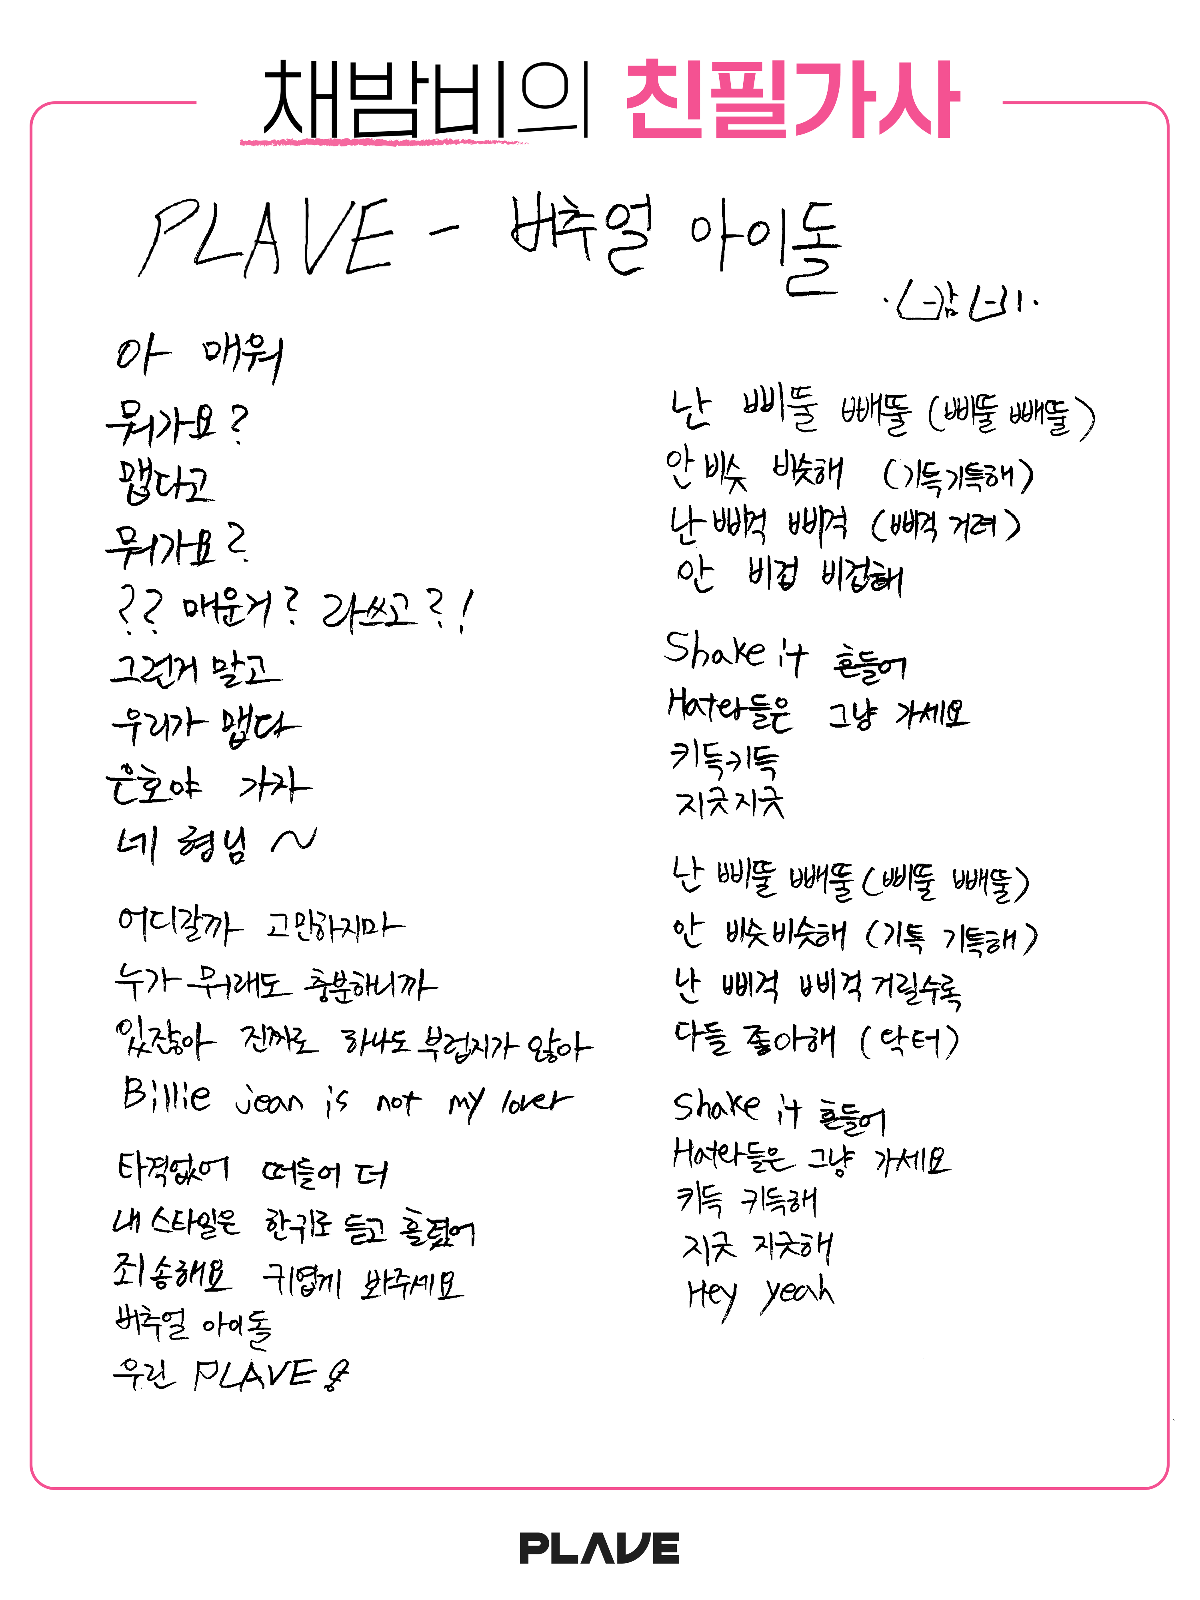 채밤비의 친필가사
PLAVE - 버추얼 아이돌
아 매워
뭐가요?
맵다고
뭐가요?
?? 매운거? 라쓰고?!
그런거 말고
우리가 맵다
은호야 가자
네 형님 ~
어디갈까 고민하지마
누가 뭐래도 충분하니까
있잖아 진짜로 하나도 부럽지가 않아
Billie jean is not my lover
타격없어 떠들어 더
내 스타일은 한귀로 듣고 흘렸어
죄송해요 귀엽게 봐주세요
버추얼 아이돌
우린 PLAVE
난 삐뚤 빼뚤 (삐뚤 빼뚤)
안 비슷 비슷해 (기득기특해)
난 삐걱 삐걱 (삐걱 거려)
안 비겁 비겁해
Shake it 흔들어
Hater들은 그냥 가세요
키득키득
지긋지긋
난 삐뚤 빼뚤 (삐뚤 빼뚤)
안 비슷비슷해 (기특 기특해)
난 삐걱 삐걱거릴수록
다들 좋아해 (닥터)
Shake it 흔들어
Hater들은 그냥 가세요
키득 키득해
지긋 지긋해
Hey yeah
PLAVE